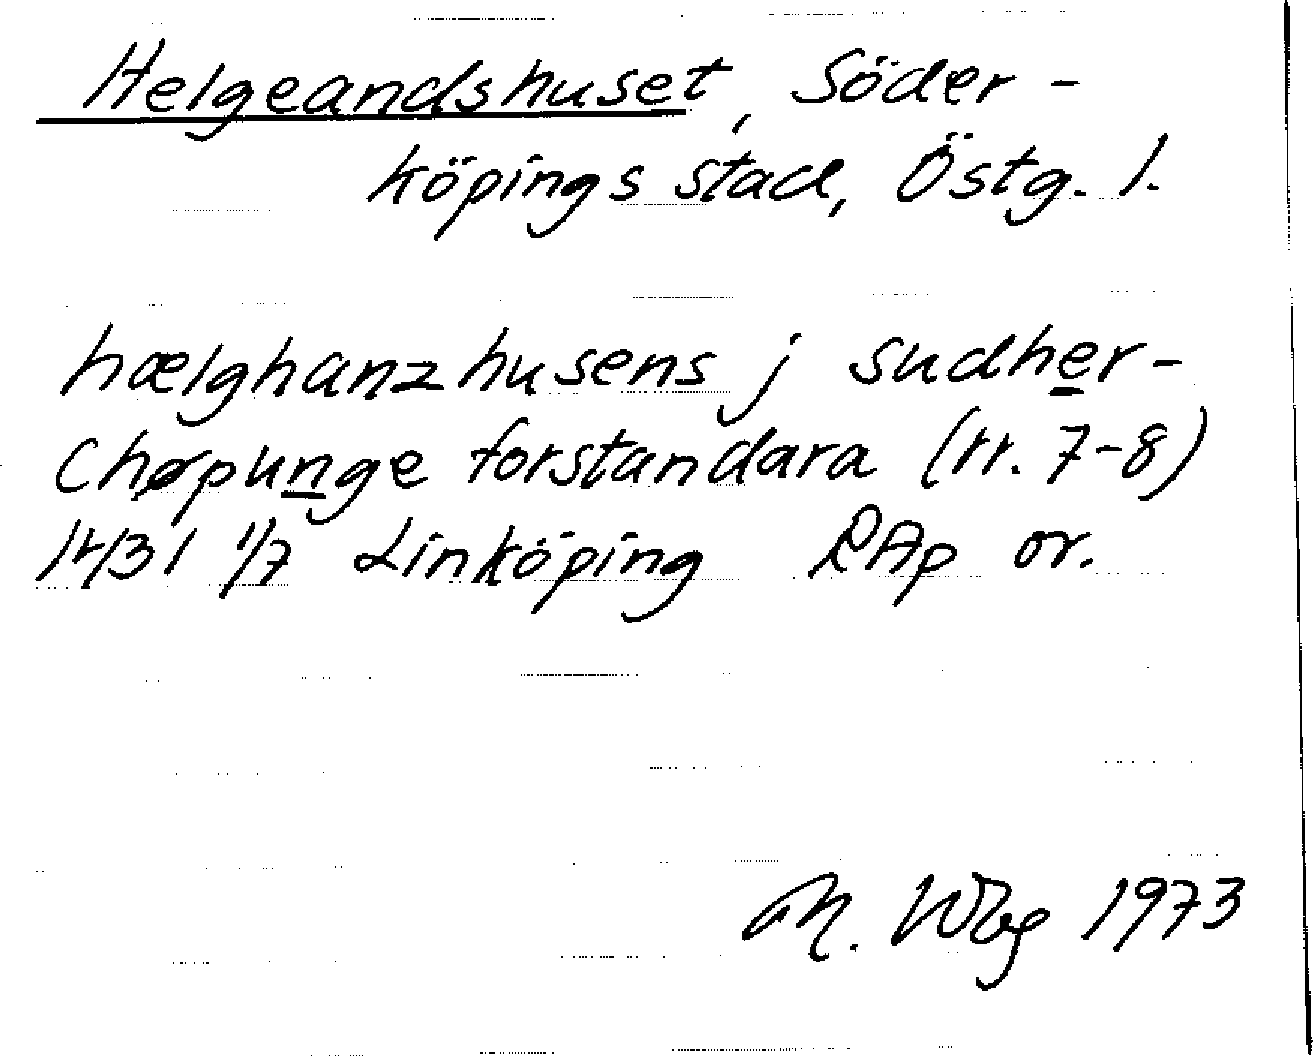 Helgeandshuset, Söder-
köpings stad, Östg. l.
hælghanzhusens j sudher-
chøpunge forstandara (rr. 7-8)
1431 1/7 Linköping RAp or.
M. Wbg 1973